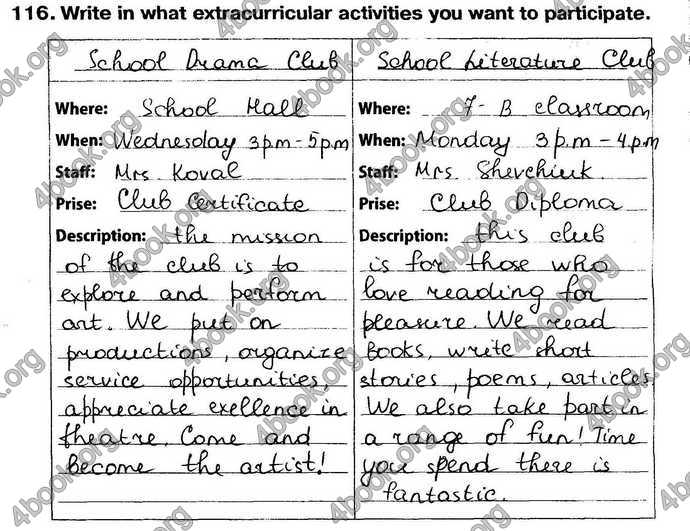 116. Write in what extracurricular activities you want to participate.
School Drama Club
Where: School Hall
When: Wednesday 3pm-5pm
Staff: Mrs. Koval
Prise: Club Certificate
Description: the mission
of the club is to
explore and perform
art. We put on
productions, organize
service opportunities,
appreciate exellence in
theatre. Come and
become the artist!
School Literature Club
Where: 7-B classroom
When: Monday 3p.m-4p.m
Staff: Mrs. Shevchiuk.
Prise: Club Diploma
Description: this club
is for those who
love reading for
pleasure. We read
books, write short
stories, poems, articles
We also take part in
a range of fun! Time
you spend there is
fantastic.
4book.org